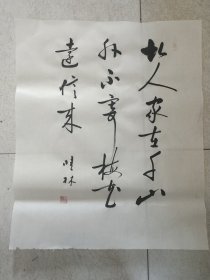 故人家在千山
外不寄梅花
遠信来
林